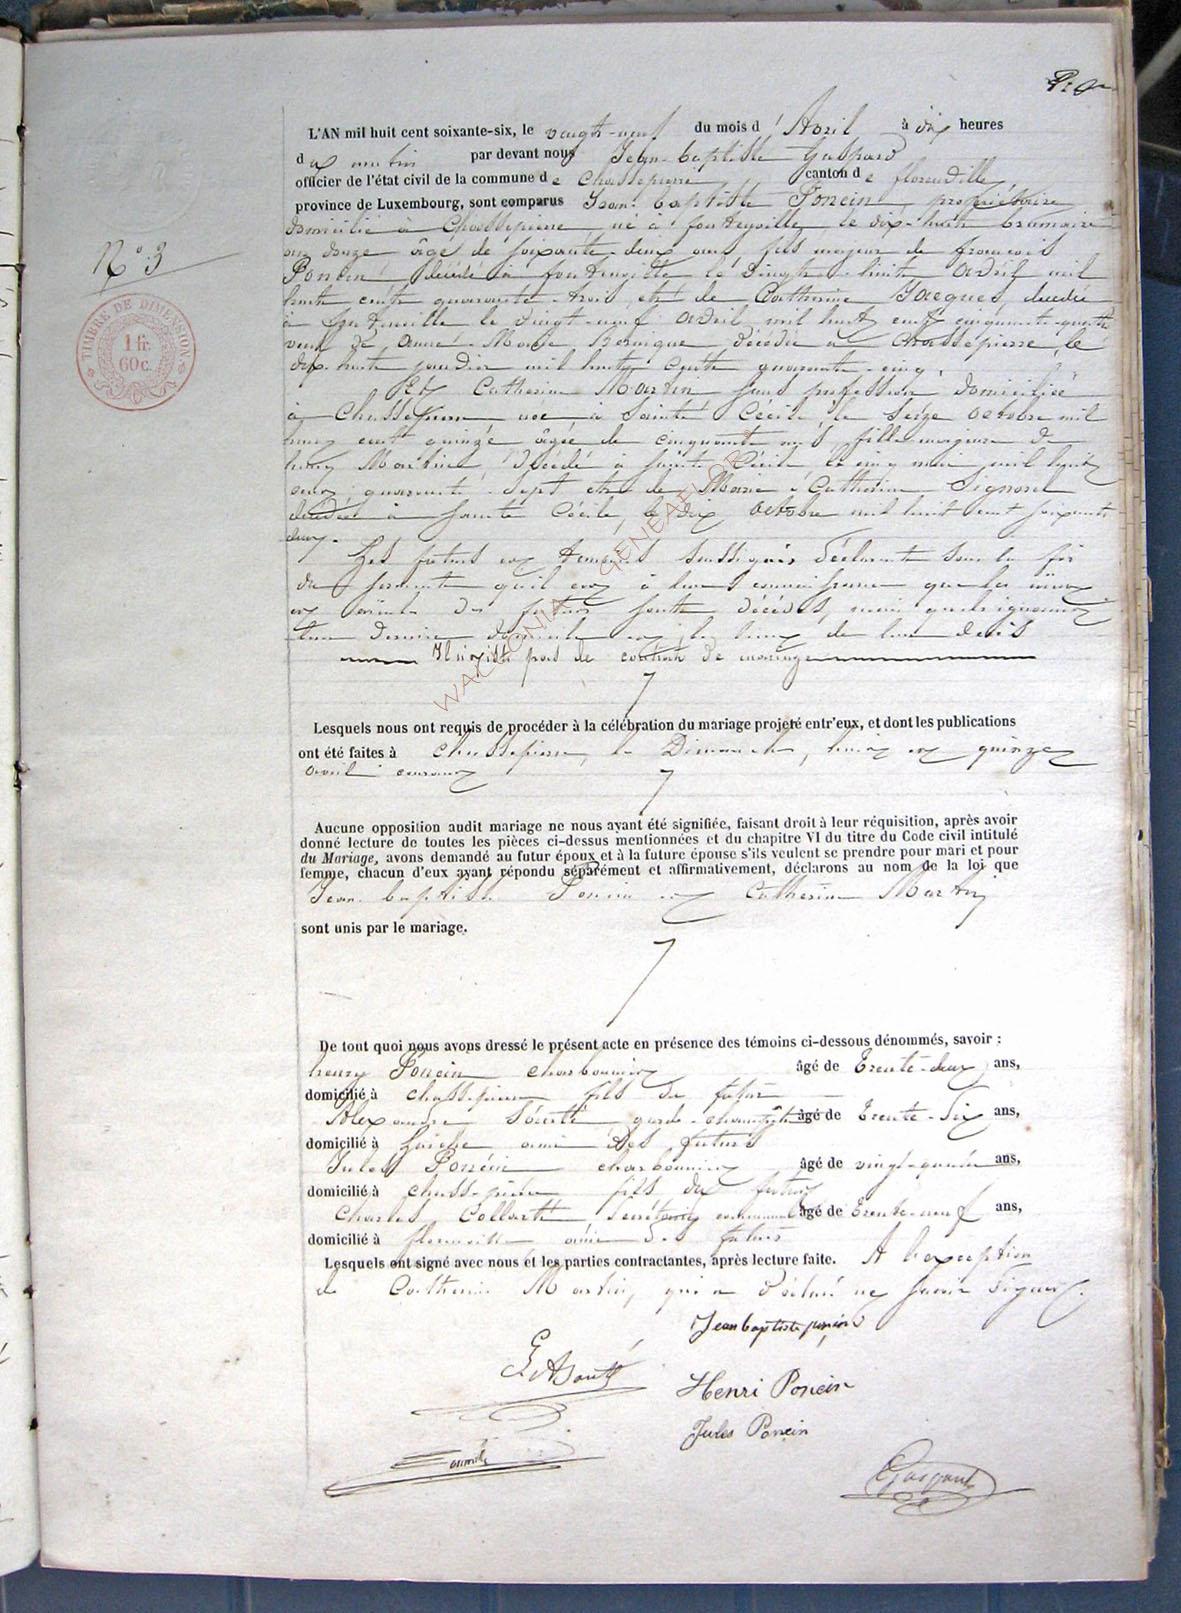 N° 3
TIMBRE DE DIMENSION
1 fr.
60 c.
L'AN mil huit cent soixante-six, le vingt-neuf du mois d'Avril à dix heures
du matin par devant nous Jean-baptiste Gaspard
officier de l'état civil de la commune de Chassepierre canton de florenville
province de Luxembourg, sont comparus Jean-baptiste Poncin, propriétaire
domicilié à Chassepierre, né à fontenoille le dix-huit brumaire
an douze âgé de soixante-deux ans fils majeur de francois
Poncin, décédé à fontenoille le vingt-huit Avril mil
huit cent quarante-trois, et de Catherine Jacques, décédée
à fontenoille le vingt-neuf avril mil huit cent cinquante-quatre
veuf de Anne-Marie décédée à Chassepierre le
dix-huit janvier mil huit cent quarante-cinq.
Et Catherine Martin sans profession domiciliée
à Chassepierre, née à Sainte Cécile, le seize octobre mil
huit cent quinze âgée de cinquante ans, fille majeure de
henry Martin, décédé à sainte Cécile, le cinq mai mil huit
cent quarante-sept et de Marie Catherine Signorel
décédée à sainte Cécile, le dix octobre mil huit cent soixante
deux.
Les futurs et témoins soussignés déclarent sous la foi
du serment qu'il est à leur connaissance que les aïeux
et aïeules des futurs sont décédés, mais qu'ils ignorent
leur dernier domicile et le lieu de leur décès
Il n'existe pas de contrat de mariage
Lesquels nous ont requis de procéder à la célébration du mariage projeté entr'eux, et dont les publications
ont été faites à Chassepierre, le Dimanche, huit et quinze
avril courant
Aucune opposition audit mariage ne nous ayant été signifiée, faisant droit à leur réquisition, après avoir
donné lecture de toutes les pièces ci-dessus mentionnées et du chapitre VI du titre du Code civil intitulé
du Mariage, avons demandé au futur époux et à la future épouse s'ils veulent se prendre pour mari et pour
femme, chacun d'eux ayant répondu séparément et affirmativement, déclarons au nom de la loi que
Jean-baptiste Poncin et Catherine Martin
sont unis par le mariage.
De tout quoi nous avons dressé le présent acte en présence des témoins ci-dessous dénommés, savoir :
henry Poncin charbonnier âgé de Trente-deux ans,
domicilié à chassepierre fils du futur
Alexandre garde-champêtre âgé de Trente-Six ans,
domicilié à ami des futurs
Jules Poncin charbonnier âgé de vingt-quatre ans,
domicilié à chassepierre fils du futur
Charles Collart Secrétaire communal âgé de Trente-neuf ans,
domicilié à florenville ami des futurs
Lesquels ont signé avec nous et les parties contractantes, après lecture faite. A l'exception
de Catherine Martin, qui a déclaré ne savoir signer.
Jean baptiste poncin
Henri Poncin
Jules Poncin
Gaspard
WALLONIA GENEAFLOR